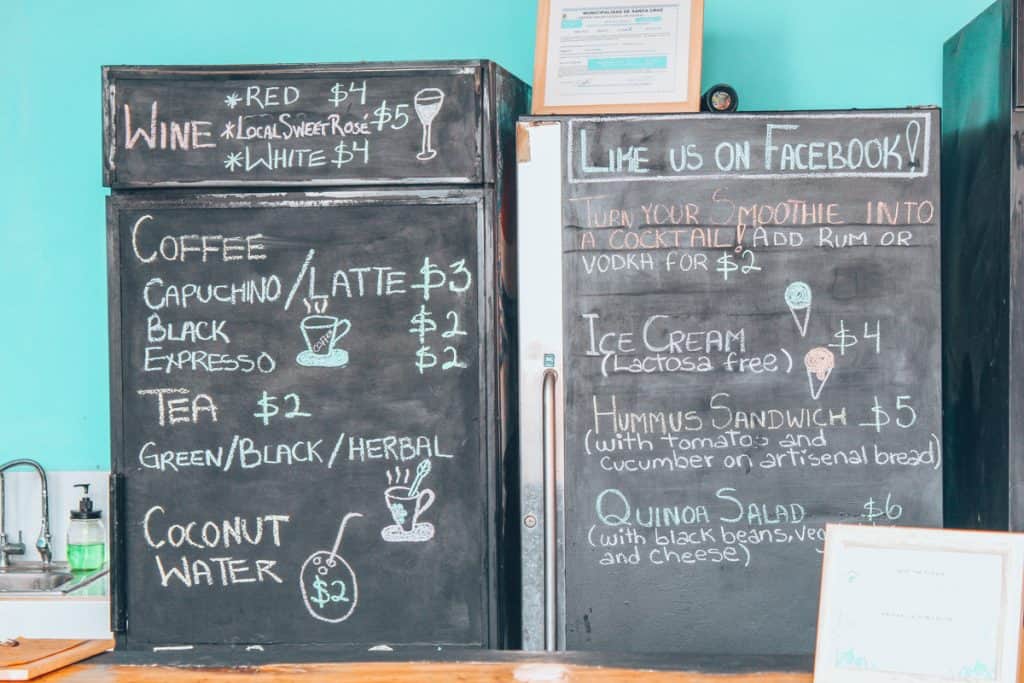 MUNICIPALIDAD DE SANTA CRUZ
WINE
*RED $4
*LOCAL SWEET ROSÉ $5
*WHITE $4
COFFEE
CAPUCHINO/LATTE $3
BLACK $2
EXPRESSO $2
COFFEE
TEA $2
GREEN/BLACK/HERBAL
COCONUT
WATER
$2
LIKE US ON FACEBOOK!
TURN YOUR SMOOTHIE INTO
A COCKTAIL! ADD RUM OR
VODKA FOR $2
ICE CREAM $4
(Lactosa free)
HUMMUS SANDWICH $5
(with tomatoe and
cucumber on artisenal bread)
QUINOA SALAD $6
(with black beans,
and cheese)